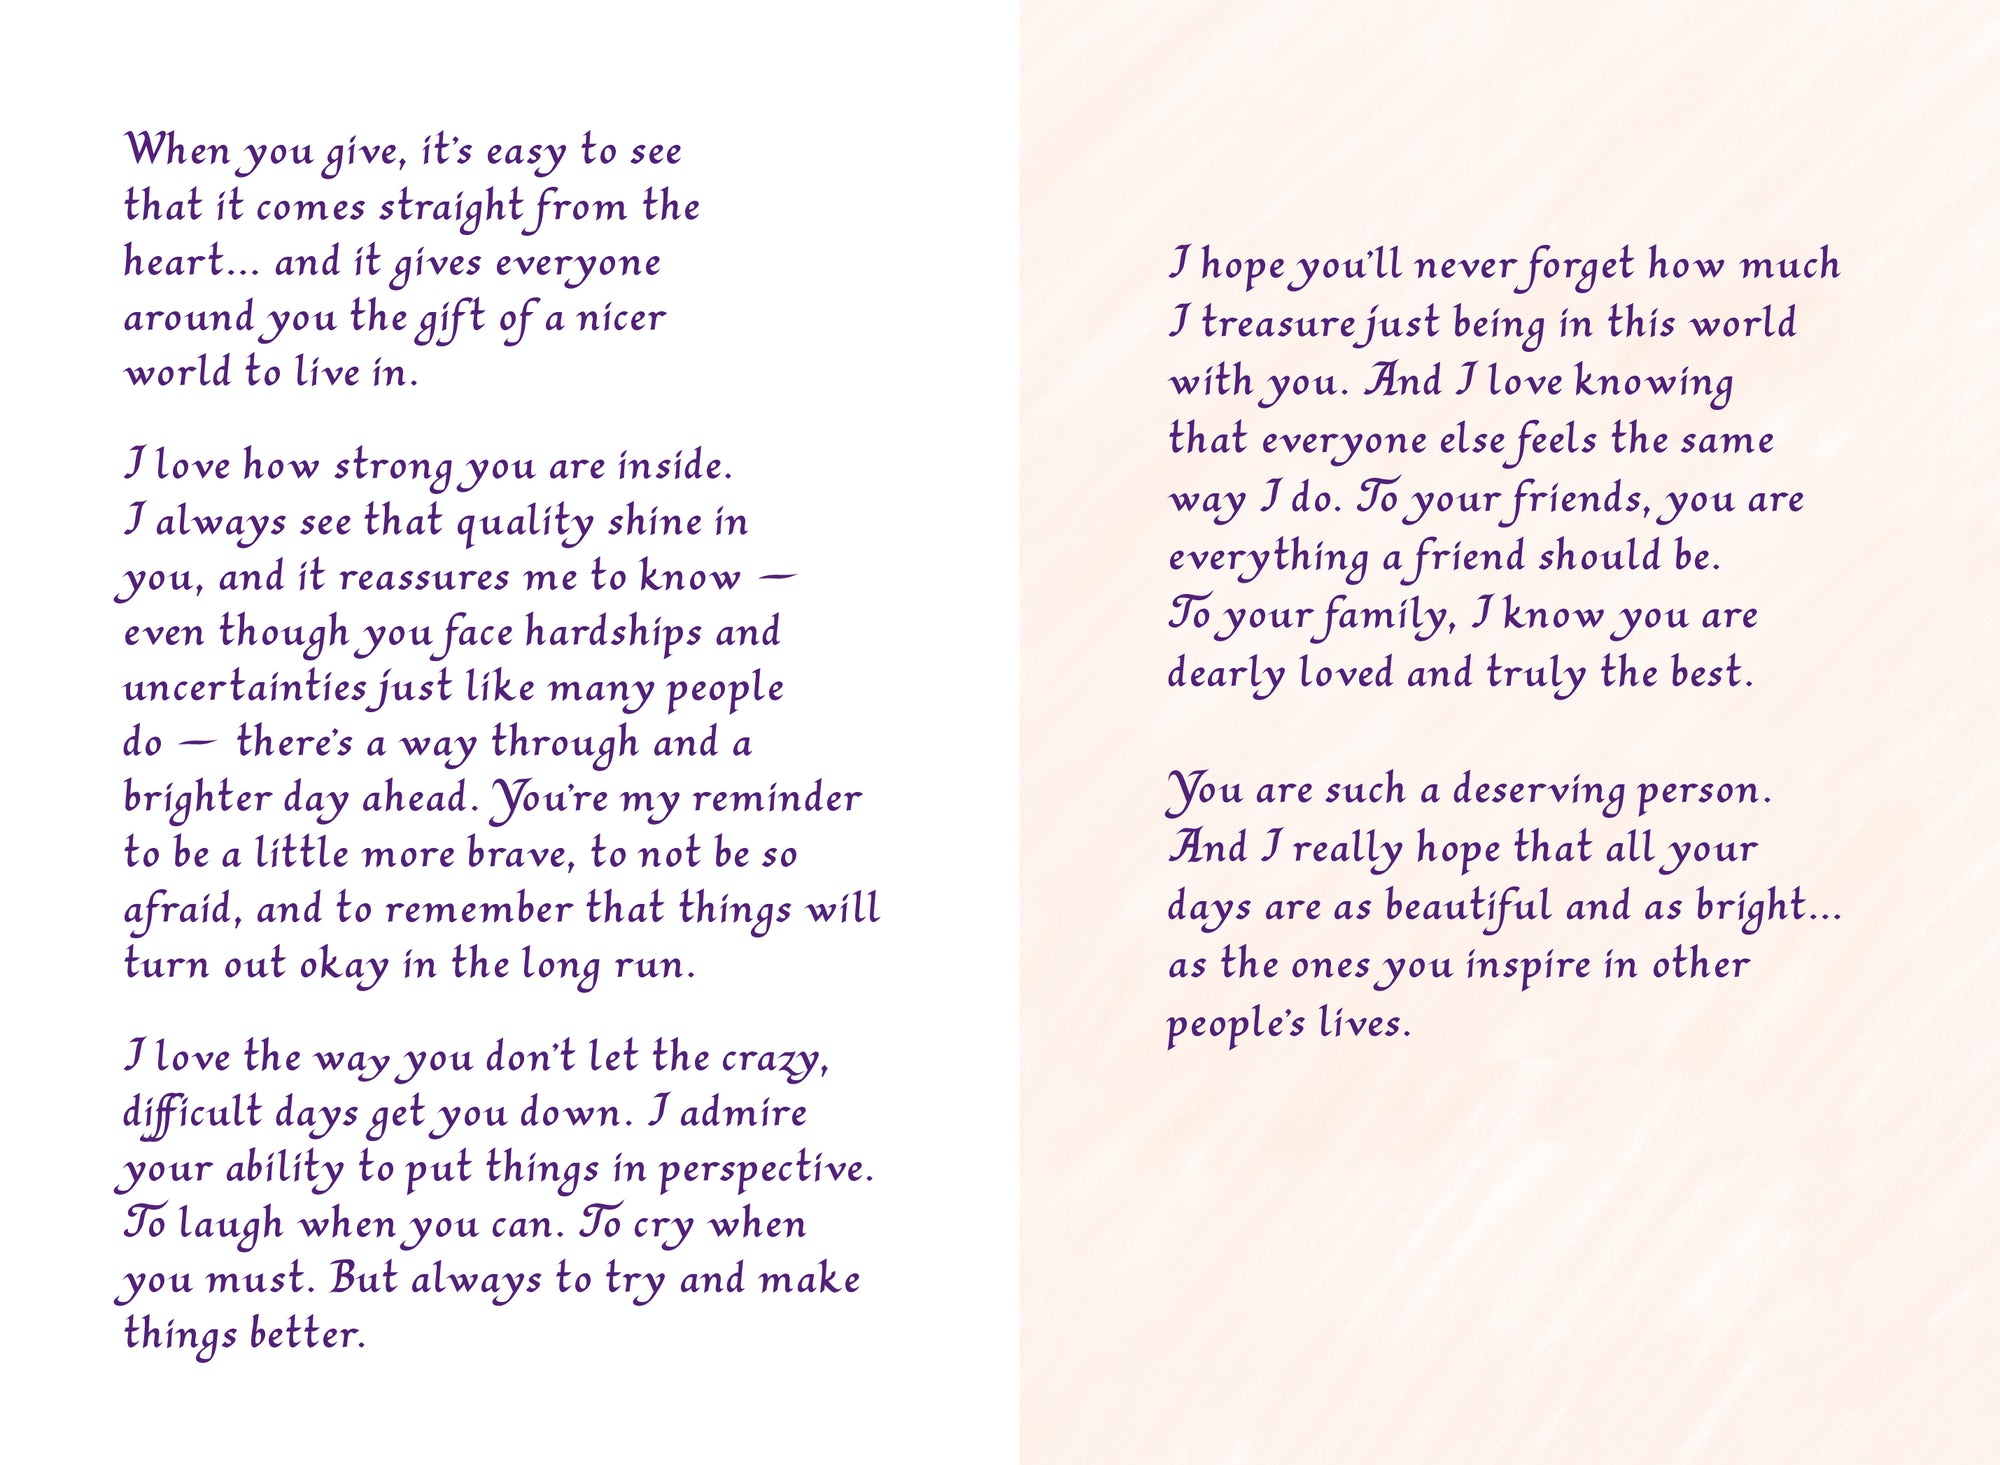 When you give, it's easy to see
that it comes straight from the
heart... and it gives everyone
around you the gift of a nicer
world to live in.
I love how strong you are inside.
I always see that quality shine in
you, and it reassures me to know —
even though you face hardships and
uncertainties just like many people
do — there's a way through and a
brighter day ahead. You're my reminder
to be a little more brave, to not be so
afraid, and to remember that things will
turn out okay in the long run.
I love the way you don't let the crazy,
difficult days get you down. I admire
your ability to put things in perspective.
To laugh when you can. To cry when
you must. But always to try and make
things better.
I hope you'll never forget how much
I treasure just being in this world
with you. And I love knowing
that everyone else feels the same
way I do. To your friends, you are
everything a friend should be.
To your family, I know you are
dearly loved and truly the best.
You are such a deserving person.
And I really hope that all your
days are as beautiful and as bright...
as the ones you inspire in other
people's lives.